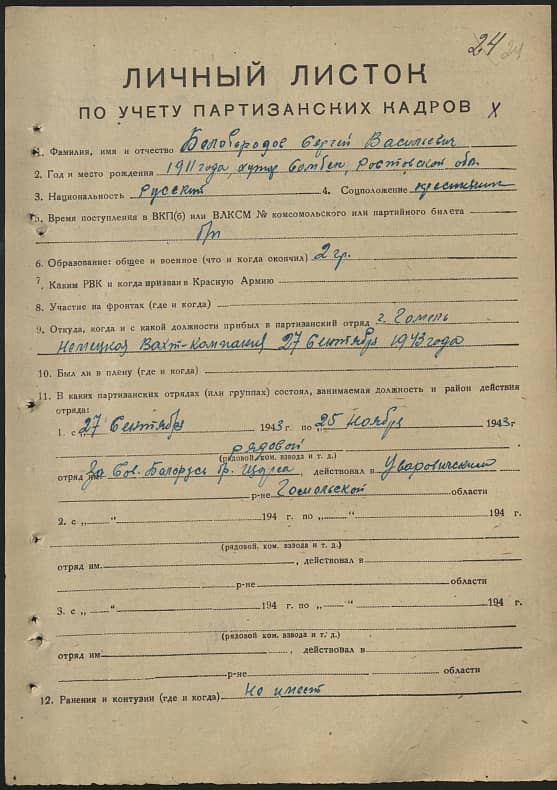 24 24
ЛИЧНЫЙ ЛИСТОК
ПО УЧЕТУ ПАРТИЗАНСКИХ КАДРОВ х
1. Фамилия, имя и отчество Белобородов Сергей Васильевич
2. Год и место рождения 1911 года, хутор Самбек, Ростовской обл.
3. Национальность Русский 4. Соцположение крестьянин
5. Время поступления в ВКП(б) или ВЛКСМ № комсомольского или партийного билета
б/п
6. Образование: общее и военное (что и когда окончил) 2 гр.
7. Каким РВК и когда призван в Красную Армию
8. Участие на фронтах (где и когда)
9. Откуда, когда и с какой должности прибыл в партизанский отряд г. Гомель
Немецкая Вахт-Компания 27 Сентября 1943 года
10. Был ли в плену (где и когда)
11. В каких партизанских отрядах (или группах) состоял, занимаемая должность и район действия
отряда:
1. с 27 Сентября 1943 г. по „25 Ноября 1943 г
рядовой
(рядовой, ком. взвода и т. д.)
отряд им. За Сов. Белорусь бр. Щорса, действовал в Уваровичский
р-не Гомельской области
2. с „ “ 194 г. по „ “ 194 г.
(рядовой, ком. взвода и т. д.)
отряд им. , действовал в
р-не области
3. с „ “ 194 г. по „ “ 194 г.
(рядовой, ком. взвода и т. д.)
отряд им. , действовал в
р-не области
12. Ранения и контузии (где и когда) Не имеет